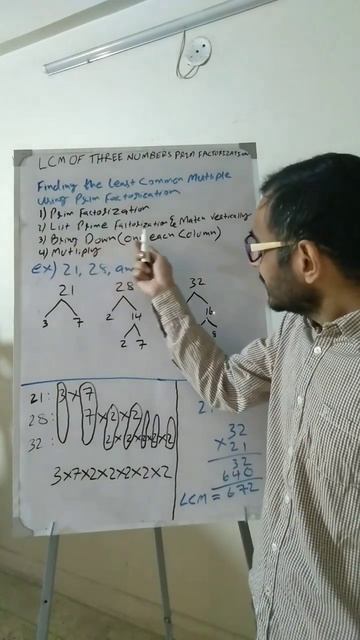 LCM OF THREE NUMBERS PRIM FACTORIZATION
Finding the Least Common Multiple
Using Prim Factorication
1) Prim Factorization
2) List Prime Factorization & Match Vertically
3) Bring Down (One each Column)
4) Multiply
ex) 21, 28, an
21 28 32
3 7 2 14 16
2 7 8
21: 3 x 7
28: 7 x 2 x 2
32: 2 x 2 x 2 x 2 x 2
3x7x2x2x2x2x2
32
x 21
32
640
LCM = 672